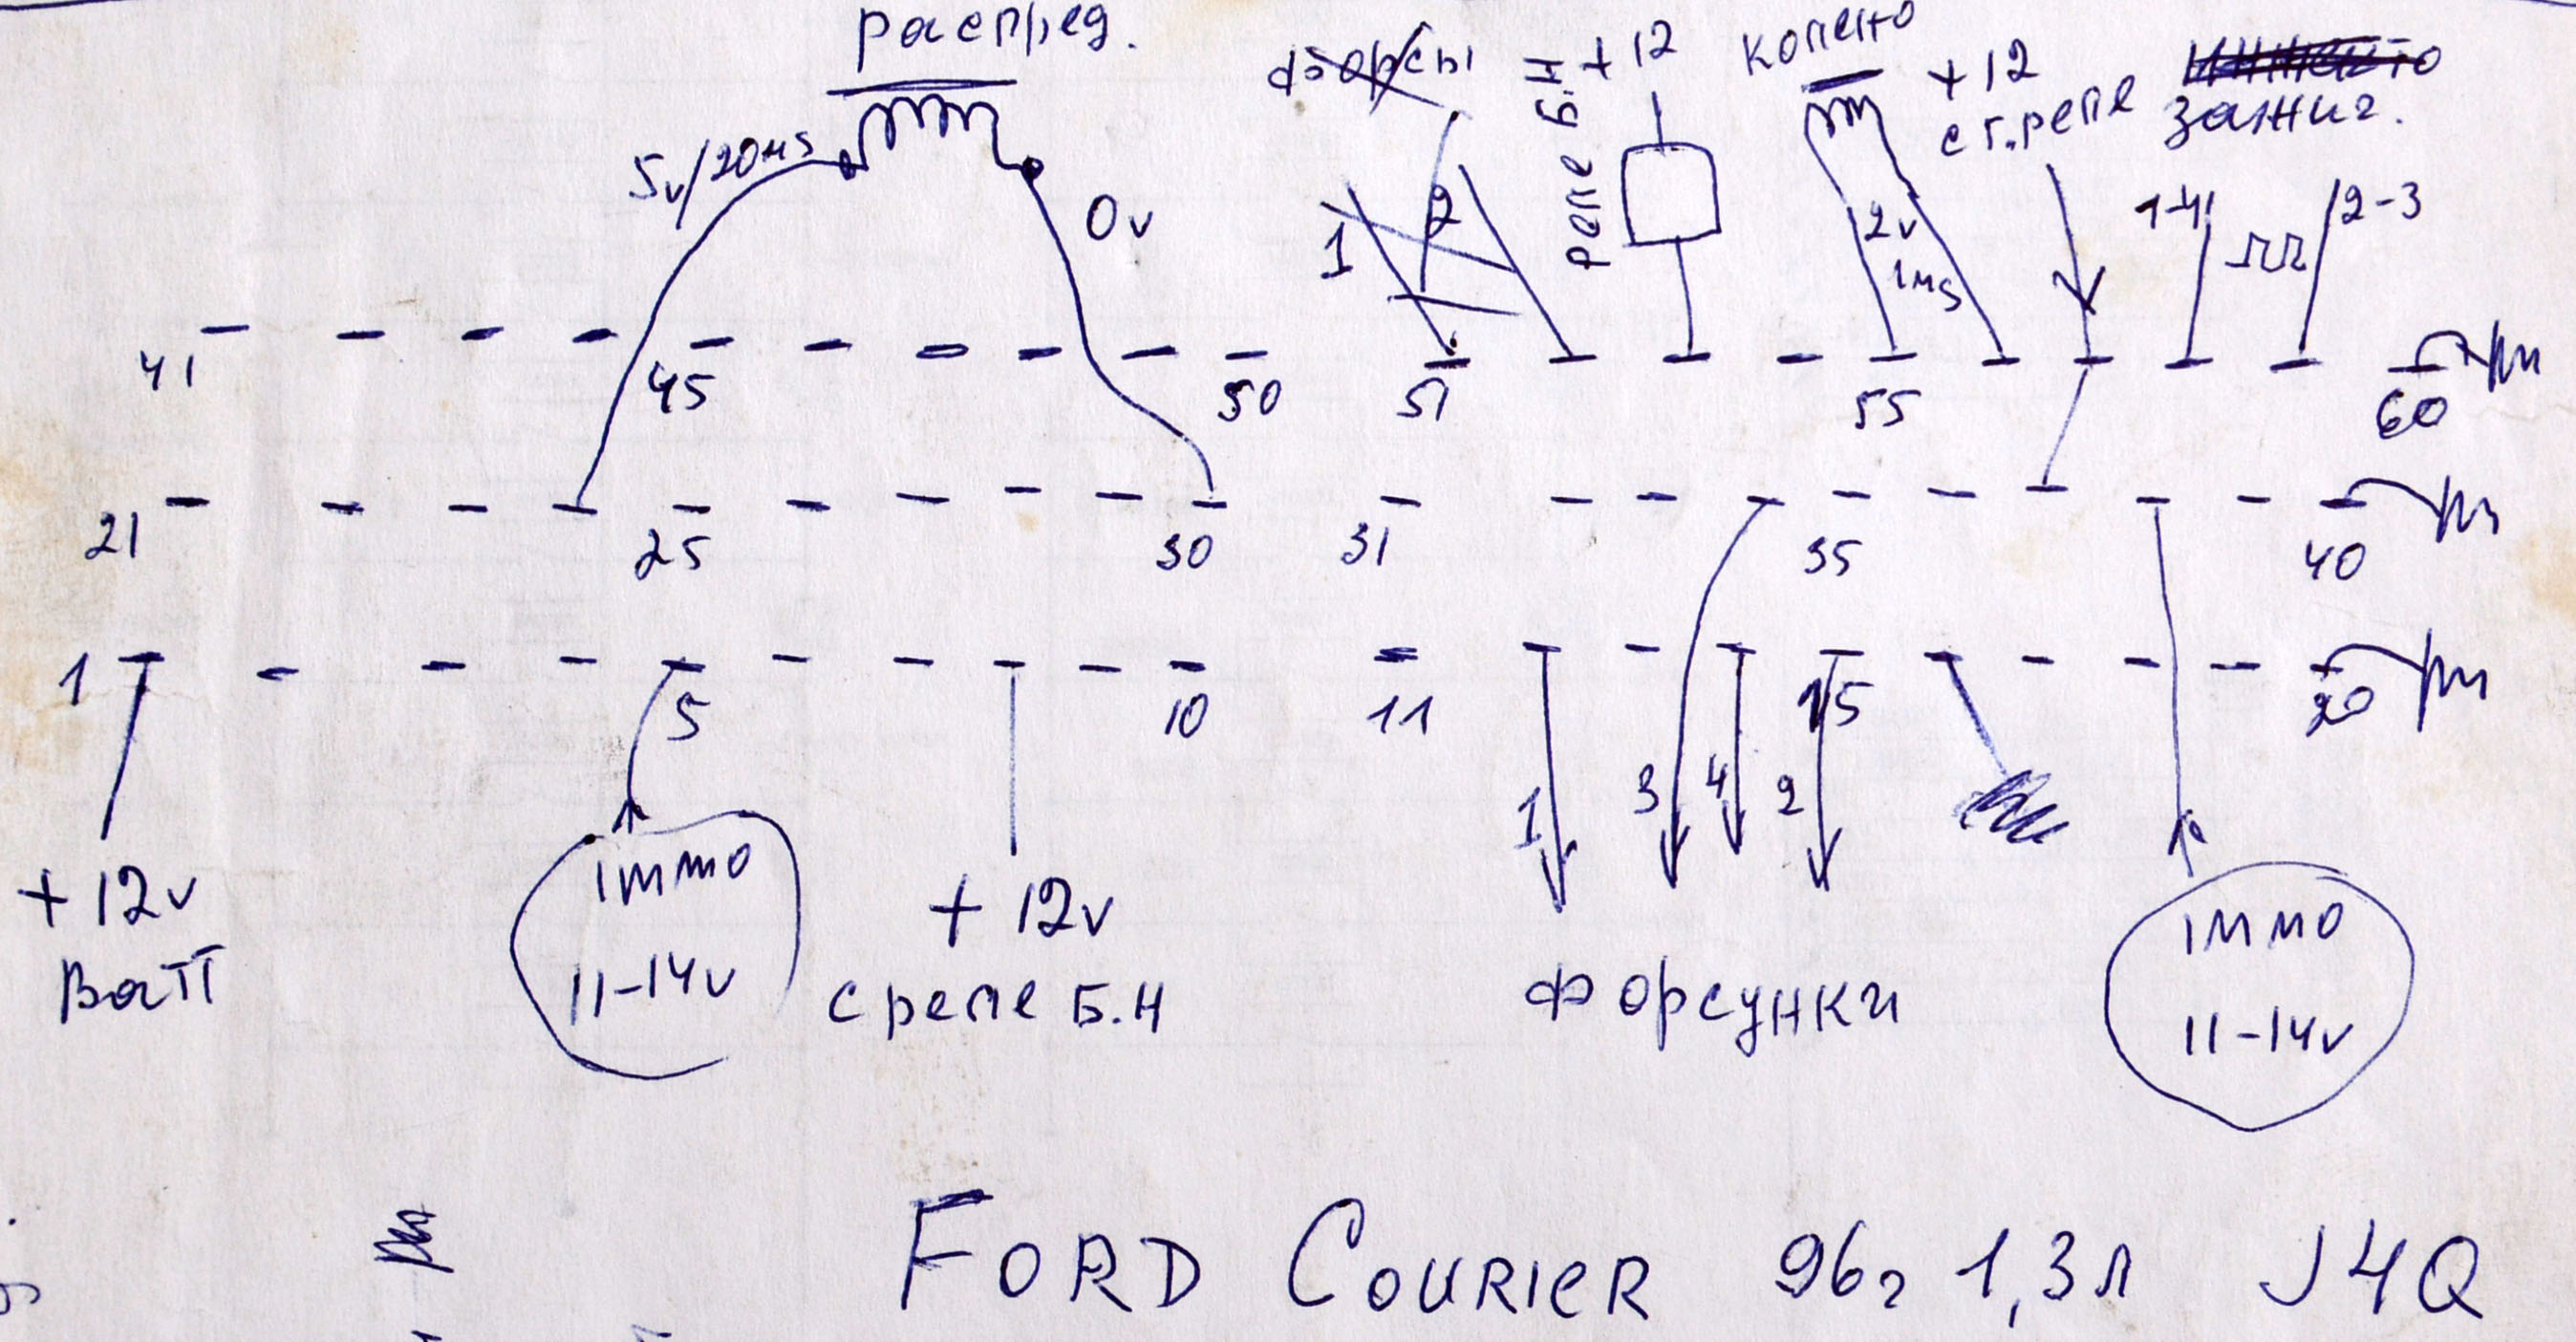 распред.
форсы
реле Б.Н +12
колено
+12
с г.реле
зажиг.
5v/20ms
0v
1 2
2v
1ms
1-4 2-3
41 45 50 51 55 60
21 25 30 31 35 40
1 5 10 11 15 20
1 3 4 2
+12v
Ватт
immo
11-14v
+ 12v
с реле Б.Н
форсунки
immo
11-14v
FORD COURIER 96г 1,3л J4Q